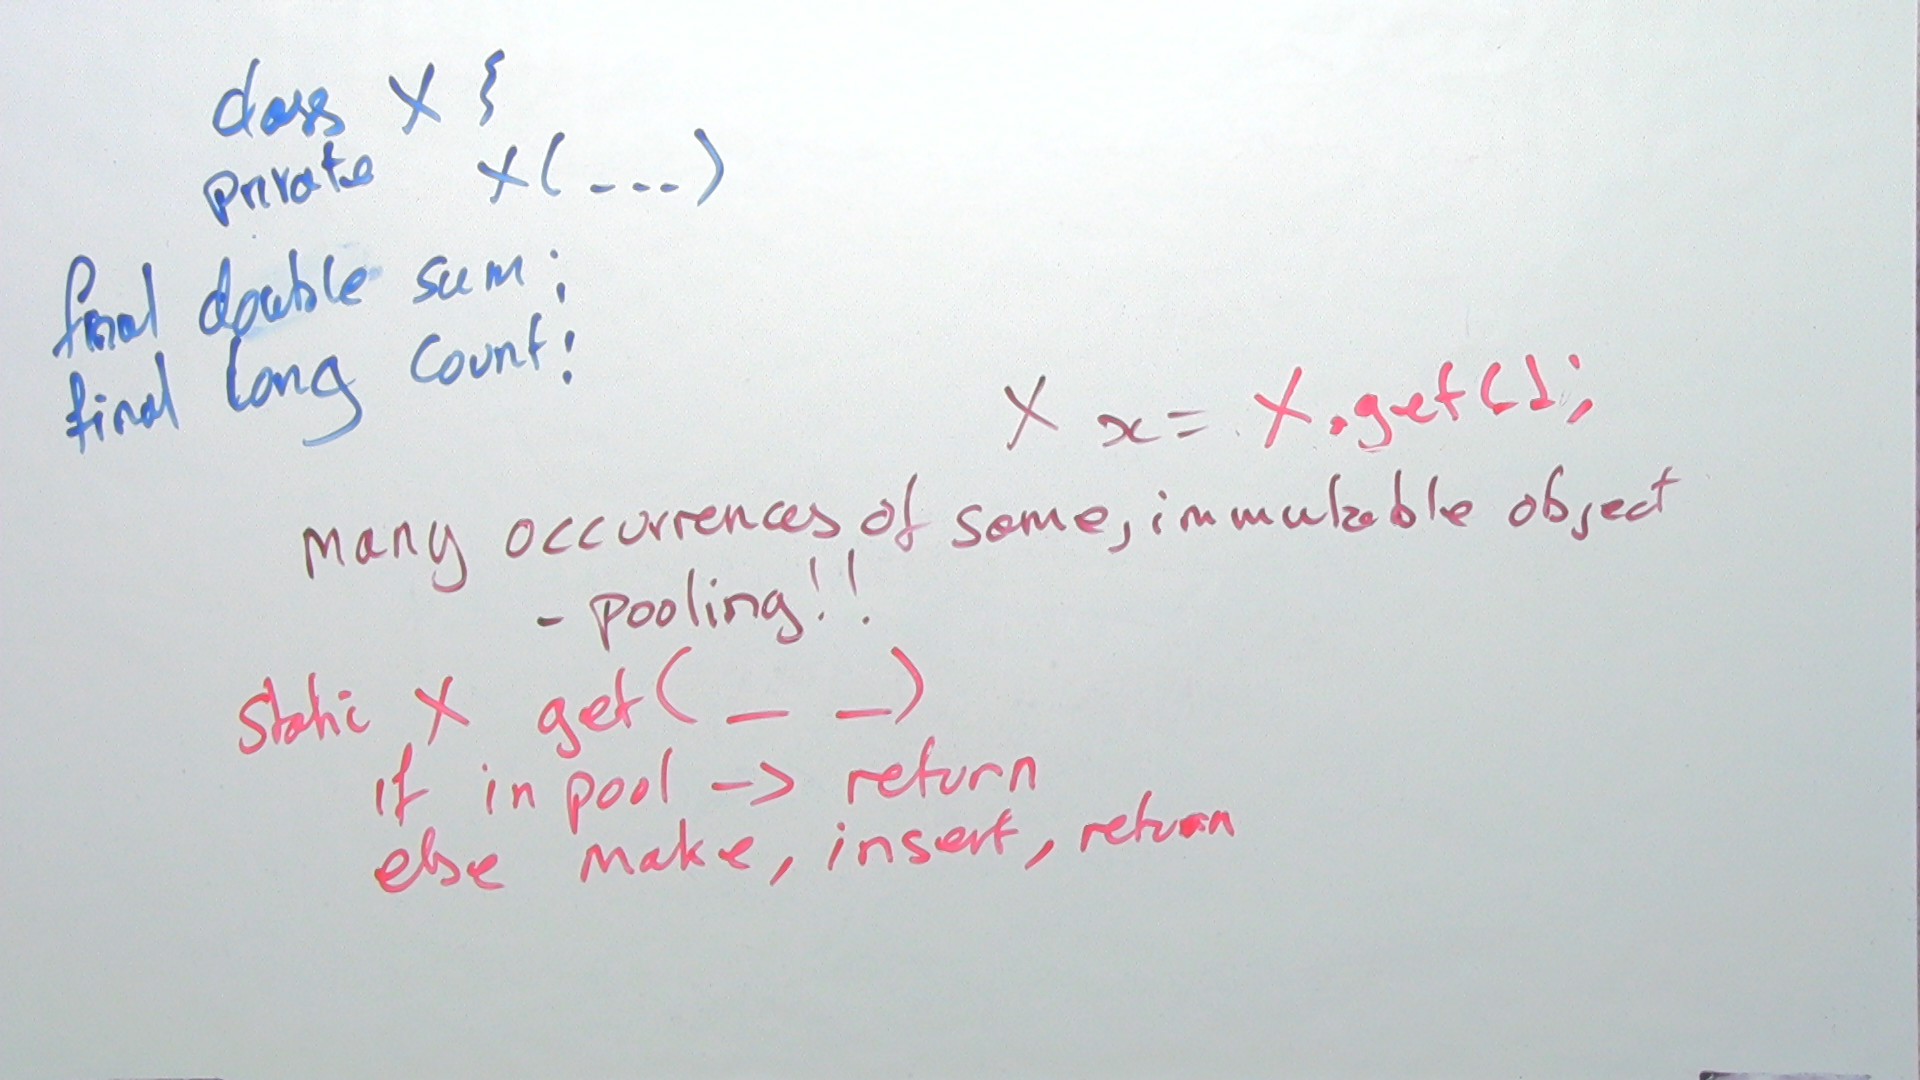 class X {
private X(----)
final double sum;
final long count;
X x = X.get();
many occurrences of same, immutable object
- pooling!!
static X get(_ _)
if in pool -> return
else make, insert, return